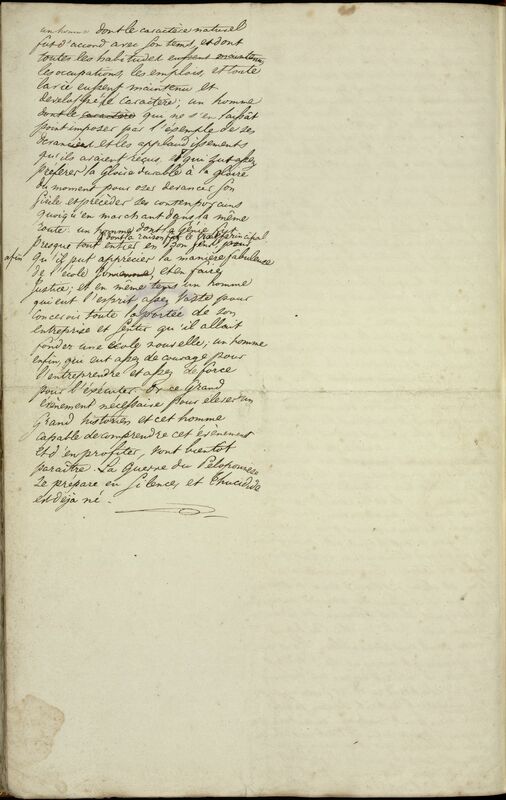 un homme dont le caractère naturel
fut d'accord avec son tems, et dont
toutes les habitudes eussent
les occupations, les emplois, et toute
la vie eussent maintenu et
développé le caractère; un homme
dont le caractère qui ne s'en laissât
point imposer par l'exemple de ses
devanciers et les applaudissements
qu'ils avaient reçus, et qui sut assez
préférer la gloire durable à la gloire
du moment pour oser devancer son
siècle et précéder ses contemporains
quoiqu'en marchant dans la même
route: un homme dont le génie fût
dont la raison fût le trait principal
presque tout entier en bon sens pour
afin qu'il put apprécier la manière fabuleuse
de l'école, et en faire
justice; et en même tems un homme
qui eut l'esprit assez vaste pour
concevoir toute la portée de son
entreprise et sentir qu'il allait
fonder une école nouvelle; un homme
enfin, qui eut assez de courage pour
l'entreprendre et assez de force
pour l'exécuter. Or ce grand
évènement nécessaire pour élever un
grand historien et cet homme
capable de comprendre cet évènement
et d'en profiter, vont bientôt
paraître. La guerre du Péloponnèse
se prépare en silence, et Thucidide
est déjà né.